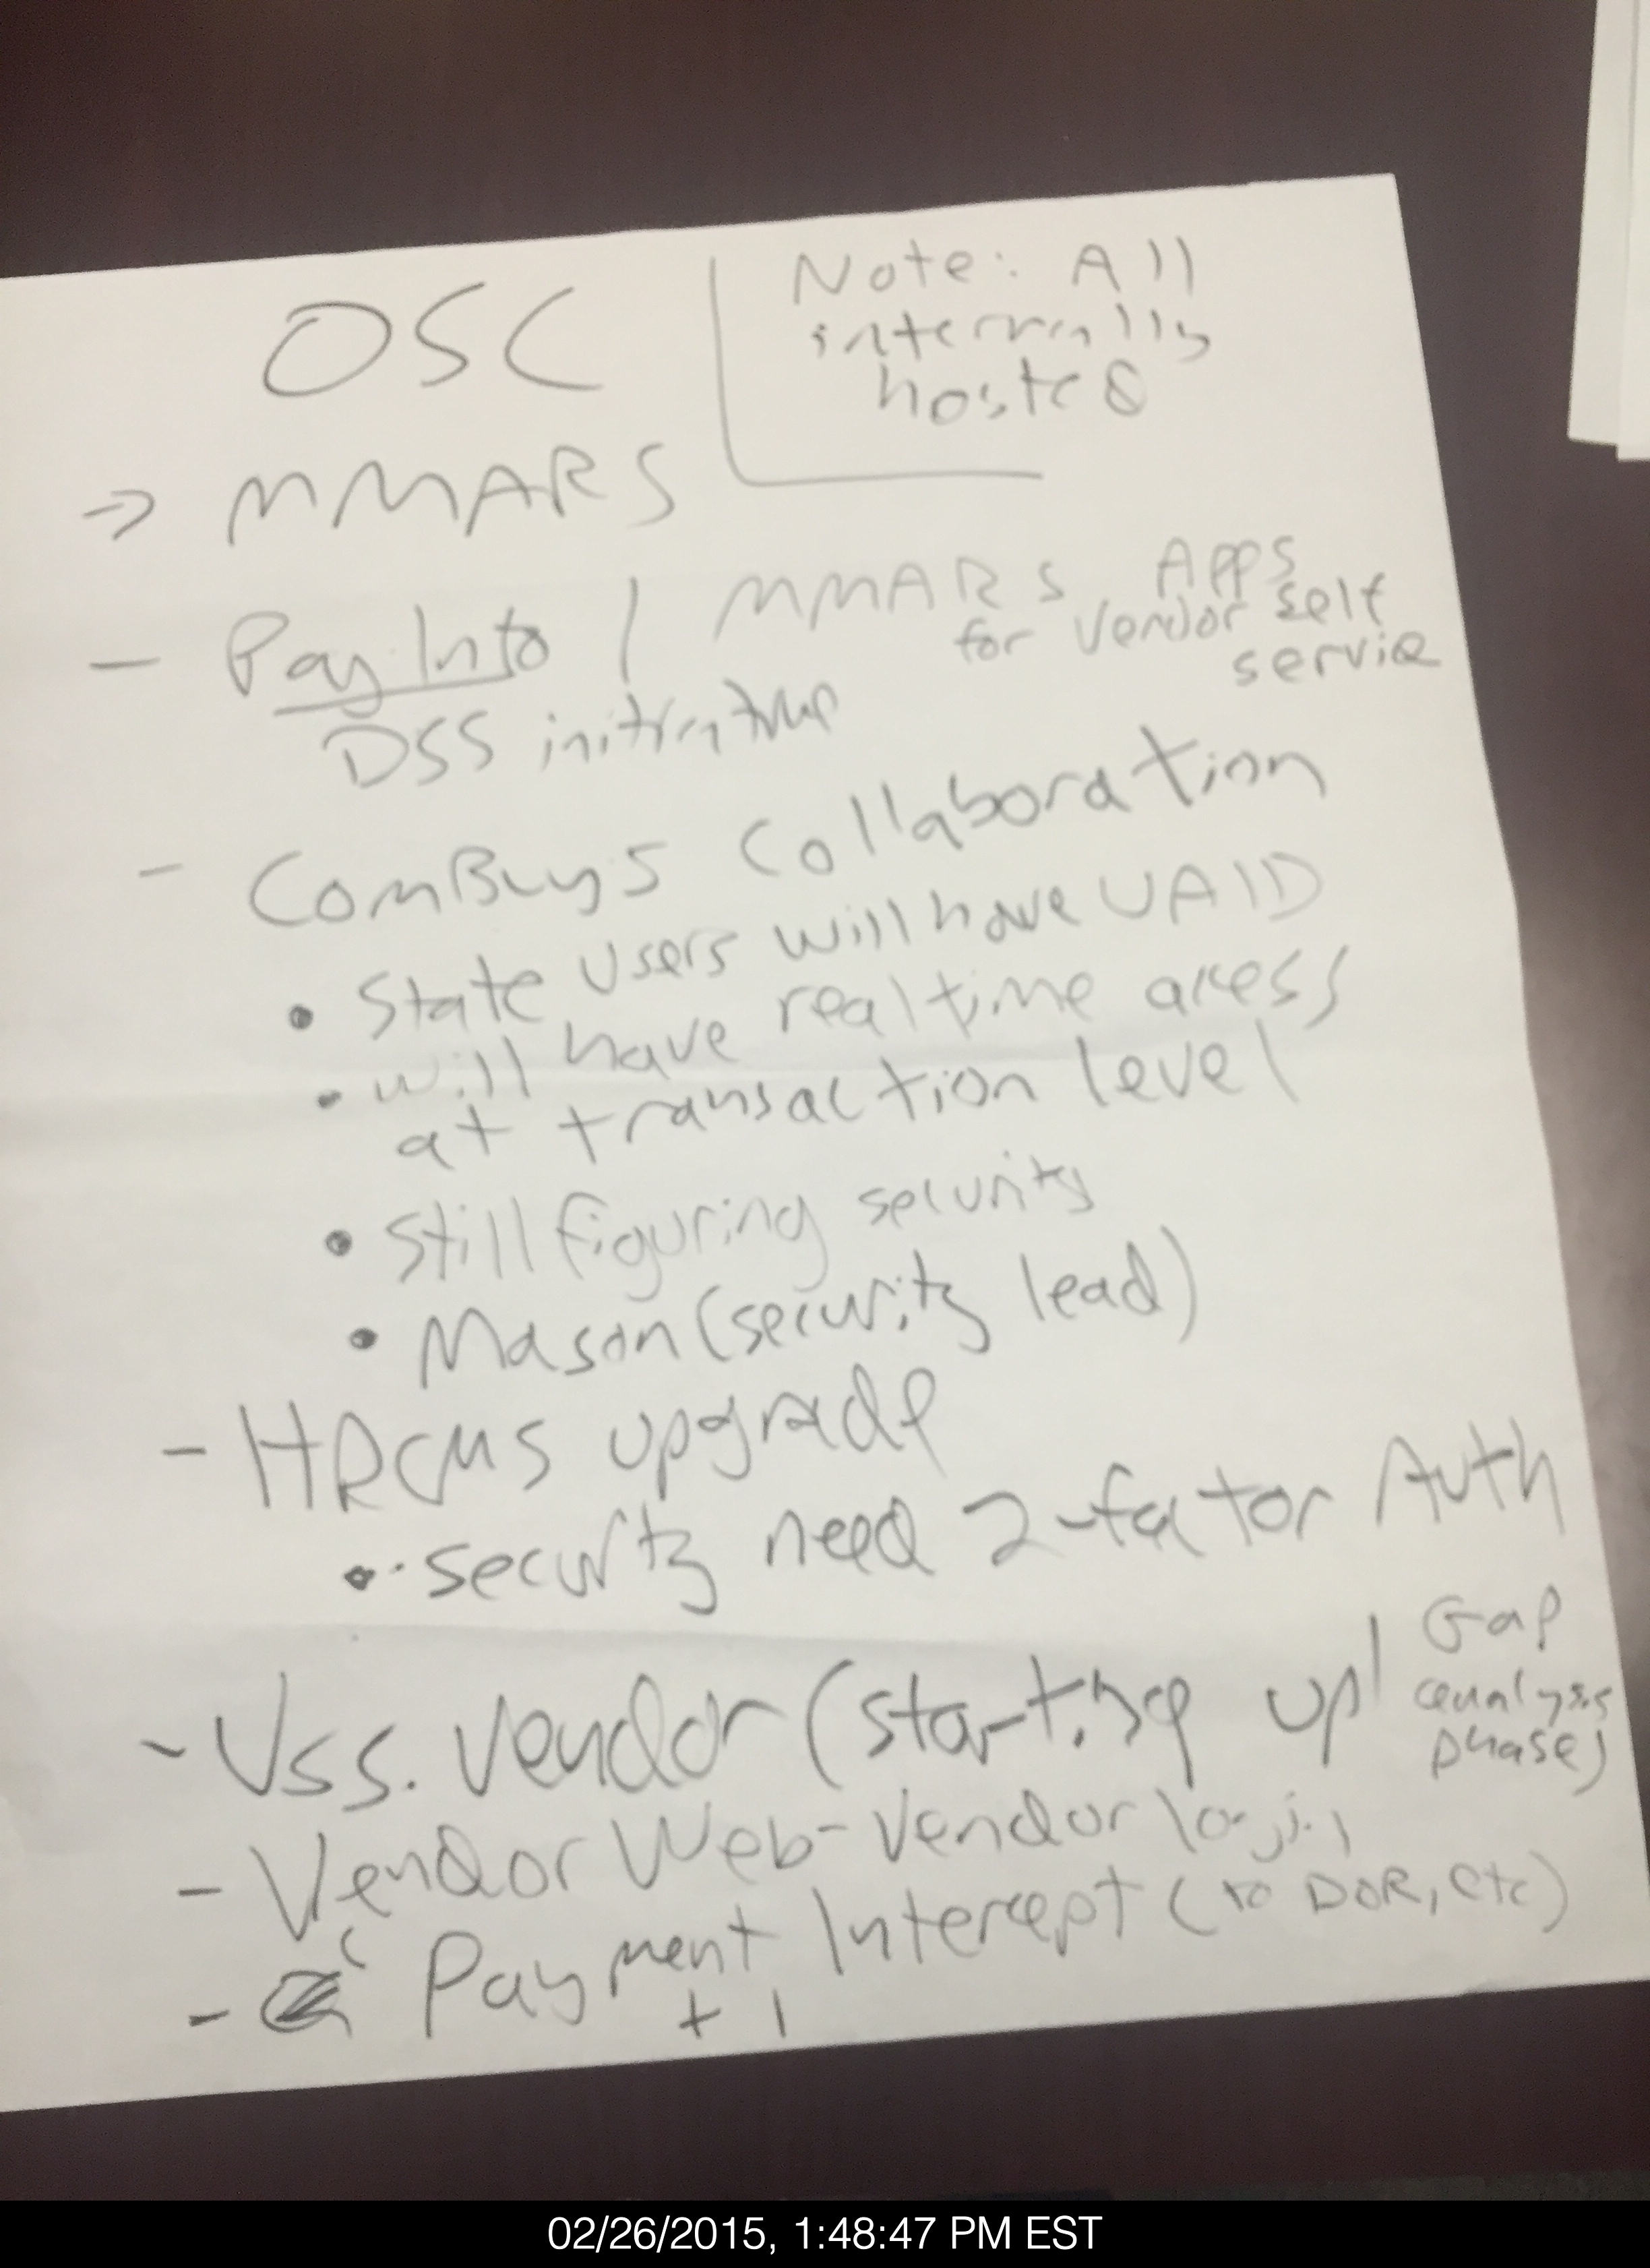 OSC
Note: All
internally
hosted
→ MMARS
- Pay Info / MMARS Apps
for Vendor self
service
DSS initiative
- ComBuys Collaboration
• State Users will have UAID
• will have realtime access
at transaction level
• Still figuring security
• Mason (security lead)
- HRCMS upgrade
• security need 2-factor Auth
- Vss. Vendor (starting up / Gap
analysis
phase)
- Vendor Web - Vendor login
- Payment Intercept (to DOR, etc)
+ 1
02/26/2015, 1:48:47 PM EST